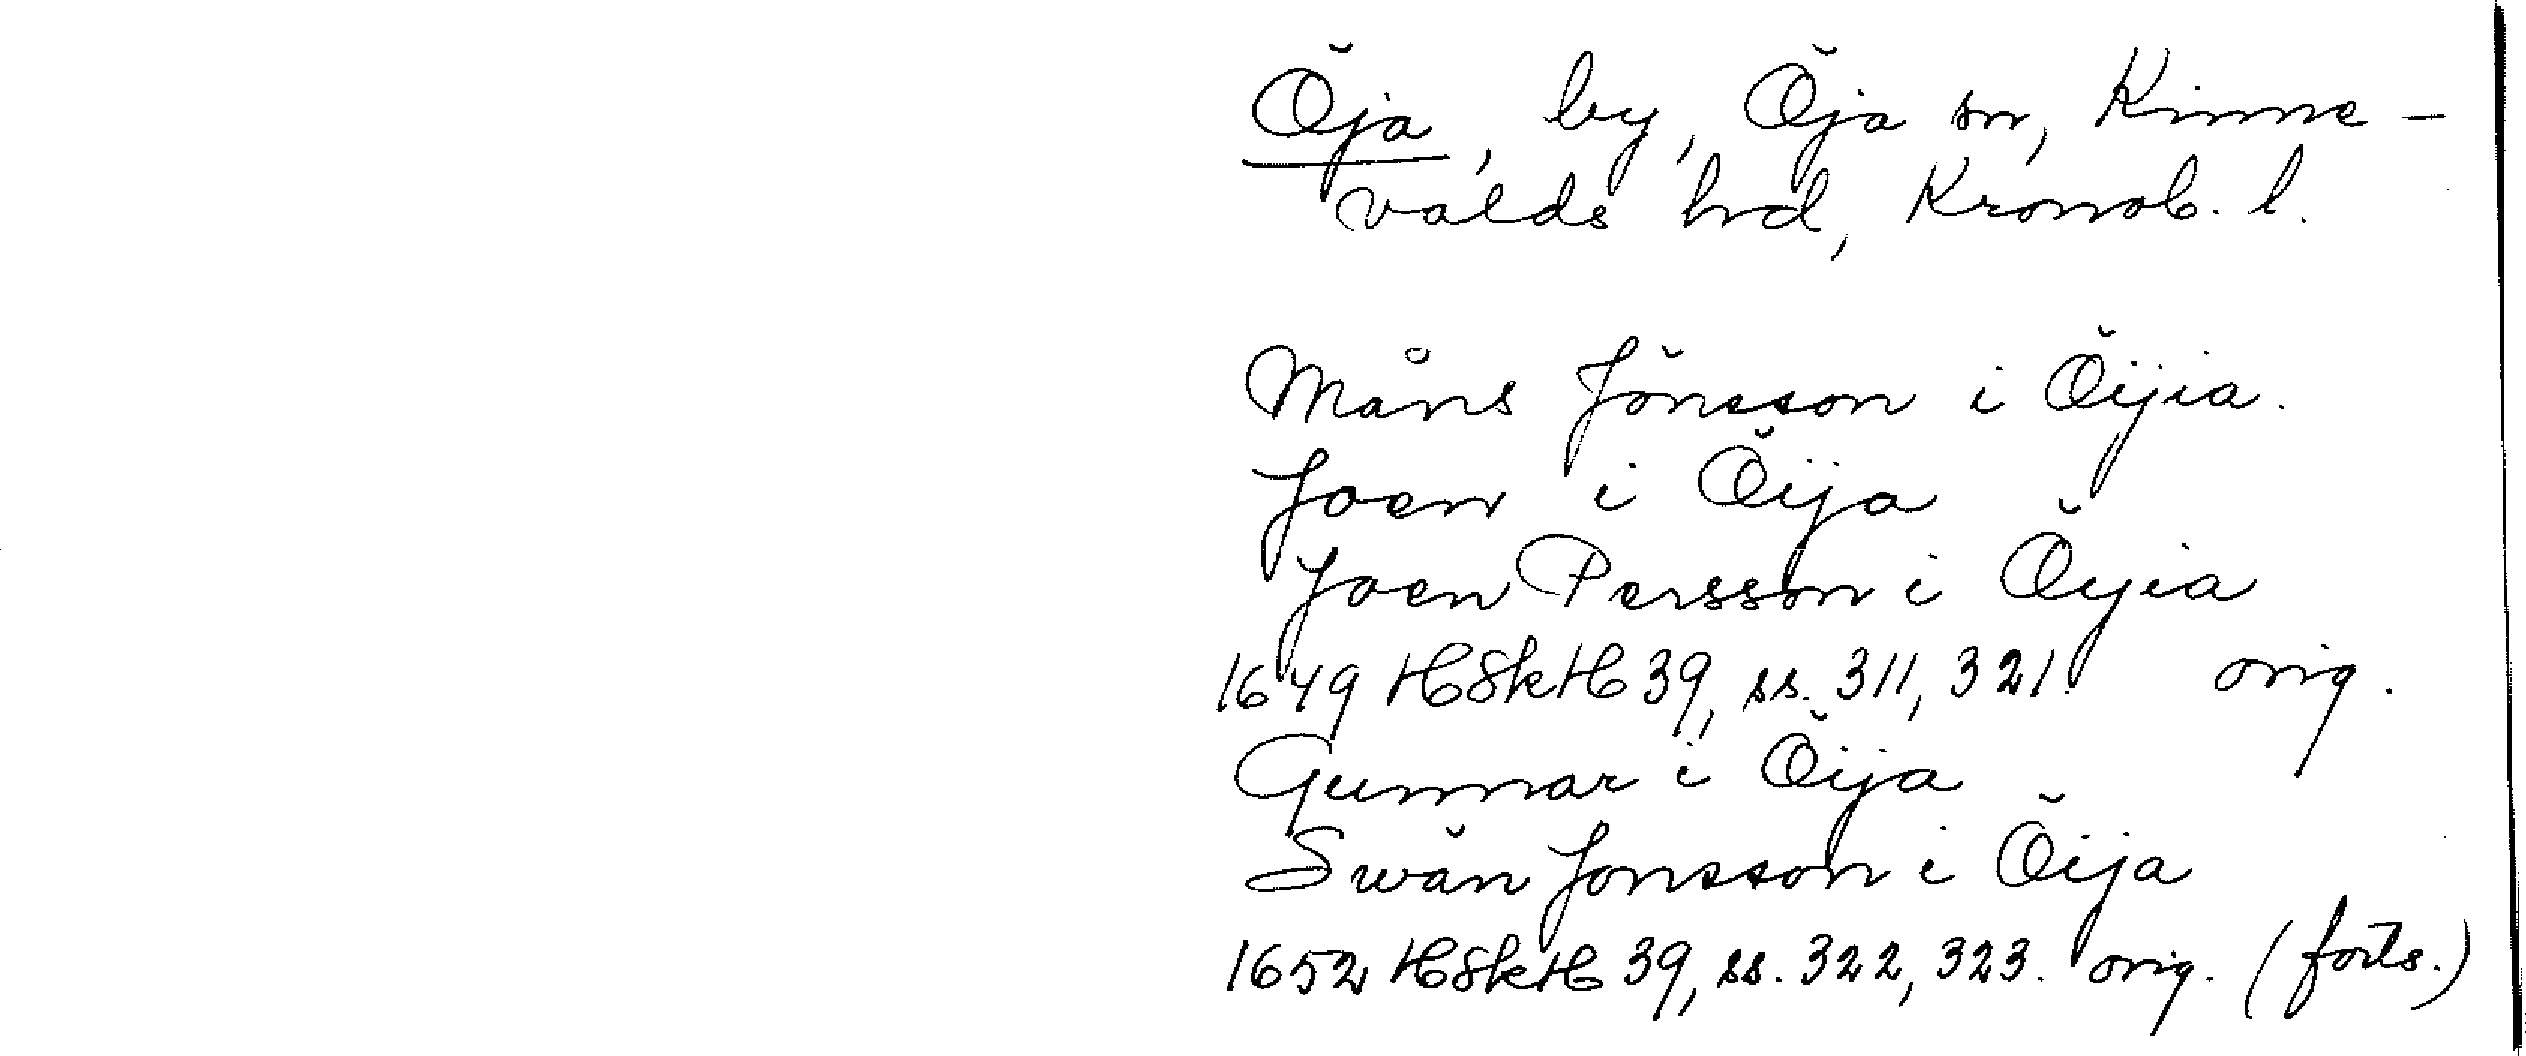 Öja, by, Öja sn, Kinne-
valds hd, Kronob. l.
Måns Jönsson i Öijia.
Joen i Öija
Joen Persson i Öijia
1649 HSkH 39, ss. 311, 321. orig.
Gunnar i Öija
Swän Jonsson i Öija
1652 HSkH 39, ss. 322, 323. orig. (forts.)